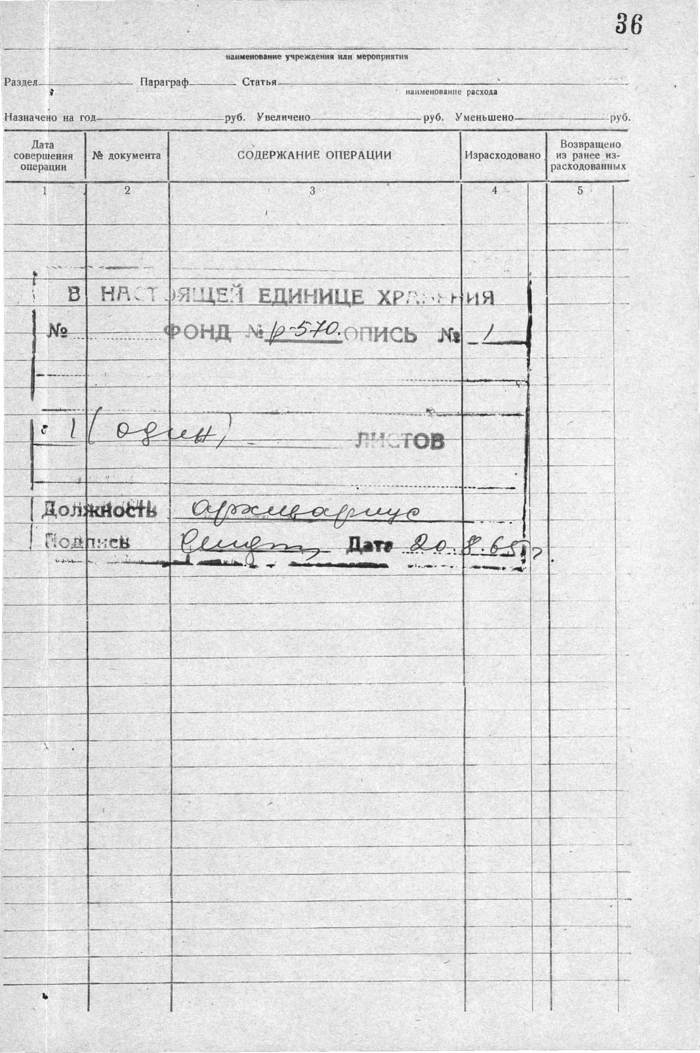 36
наименование учреждения или мероприятия
Раздел Параграф Статья
наименование расхода
Назначено на год руб. Увеличено руб. Уменьшено руб.
Дата совершения операции № документа СОДЕРЖАНИЕ ОПЕРАЦИИ Израсходовано Возвращено из ранее из-расходованных
1 2 3 4 5
В НАСТОЯЩЕЙ ЕДИНИЦЕ ХРАНЕНИЯ
№ ФОНД № р-570. ОПИСЬ № 1
1 (один) ЛИСТОВ
Должность архивариус
Подпись Дата 20.8.65г